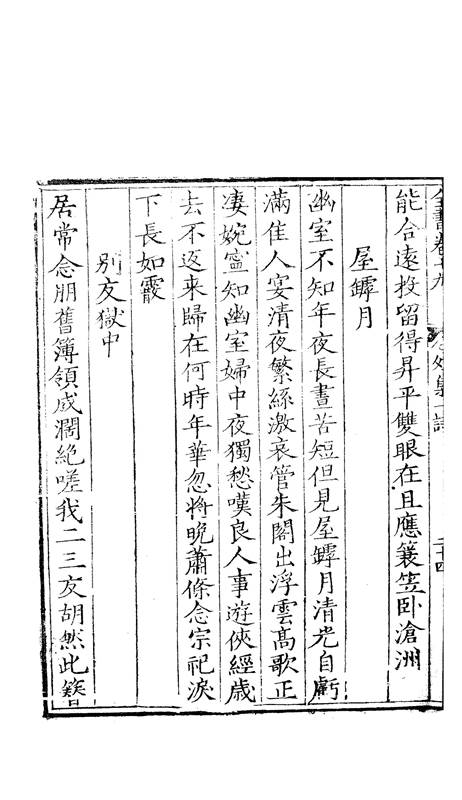 全書卷十九 外集一 詩 二十四
能合遠投留得昇平雙眼在且應簑笠卧滄洲
屋罅月
幽室不知年夜長晝苦短但見屋罅月清光自虧
滿佳人宴清夜繁絲激哀管朱閣出浮雲高歌正
凄婉寧知幽室婦中夜獨愁嘆良人事遊俠經歳
去不返来歸在何時年華忽將晩蕭條念宗祀淚
下長如霰
別友獄中
居常念朋舊簿領成濶絶嗟我二三友胡然此簪